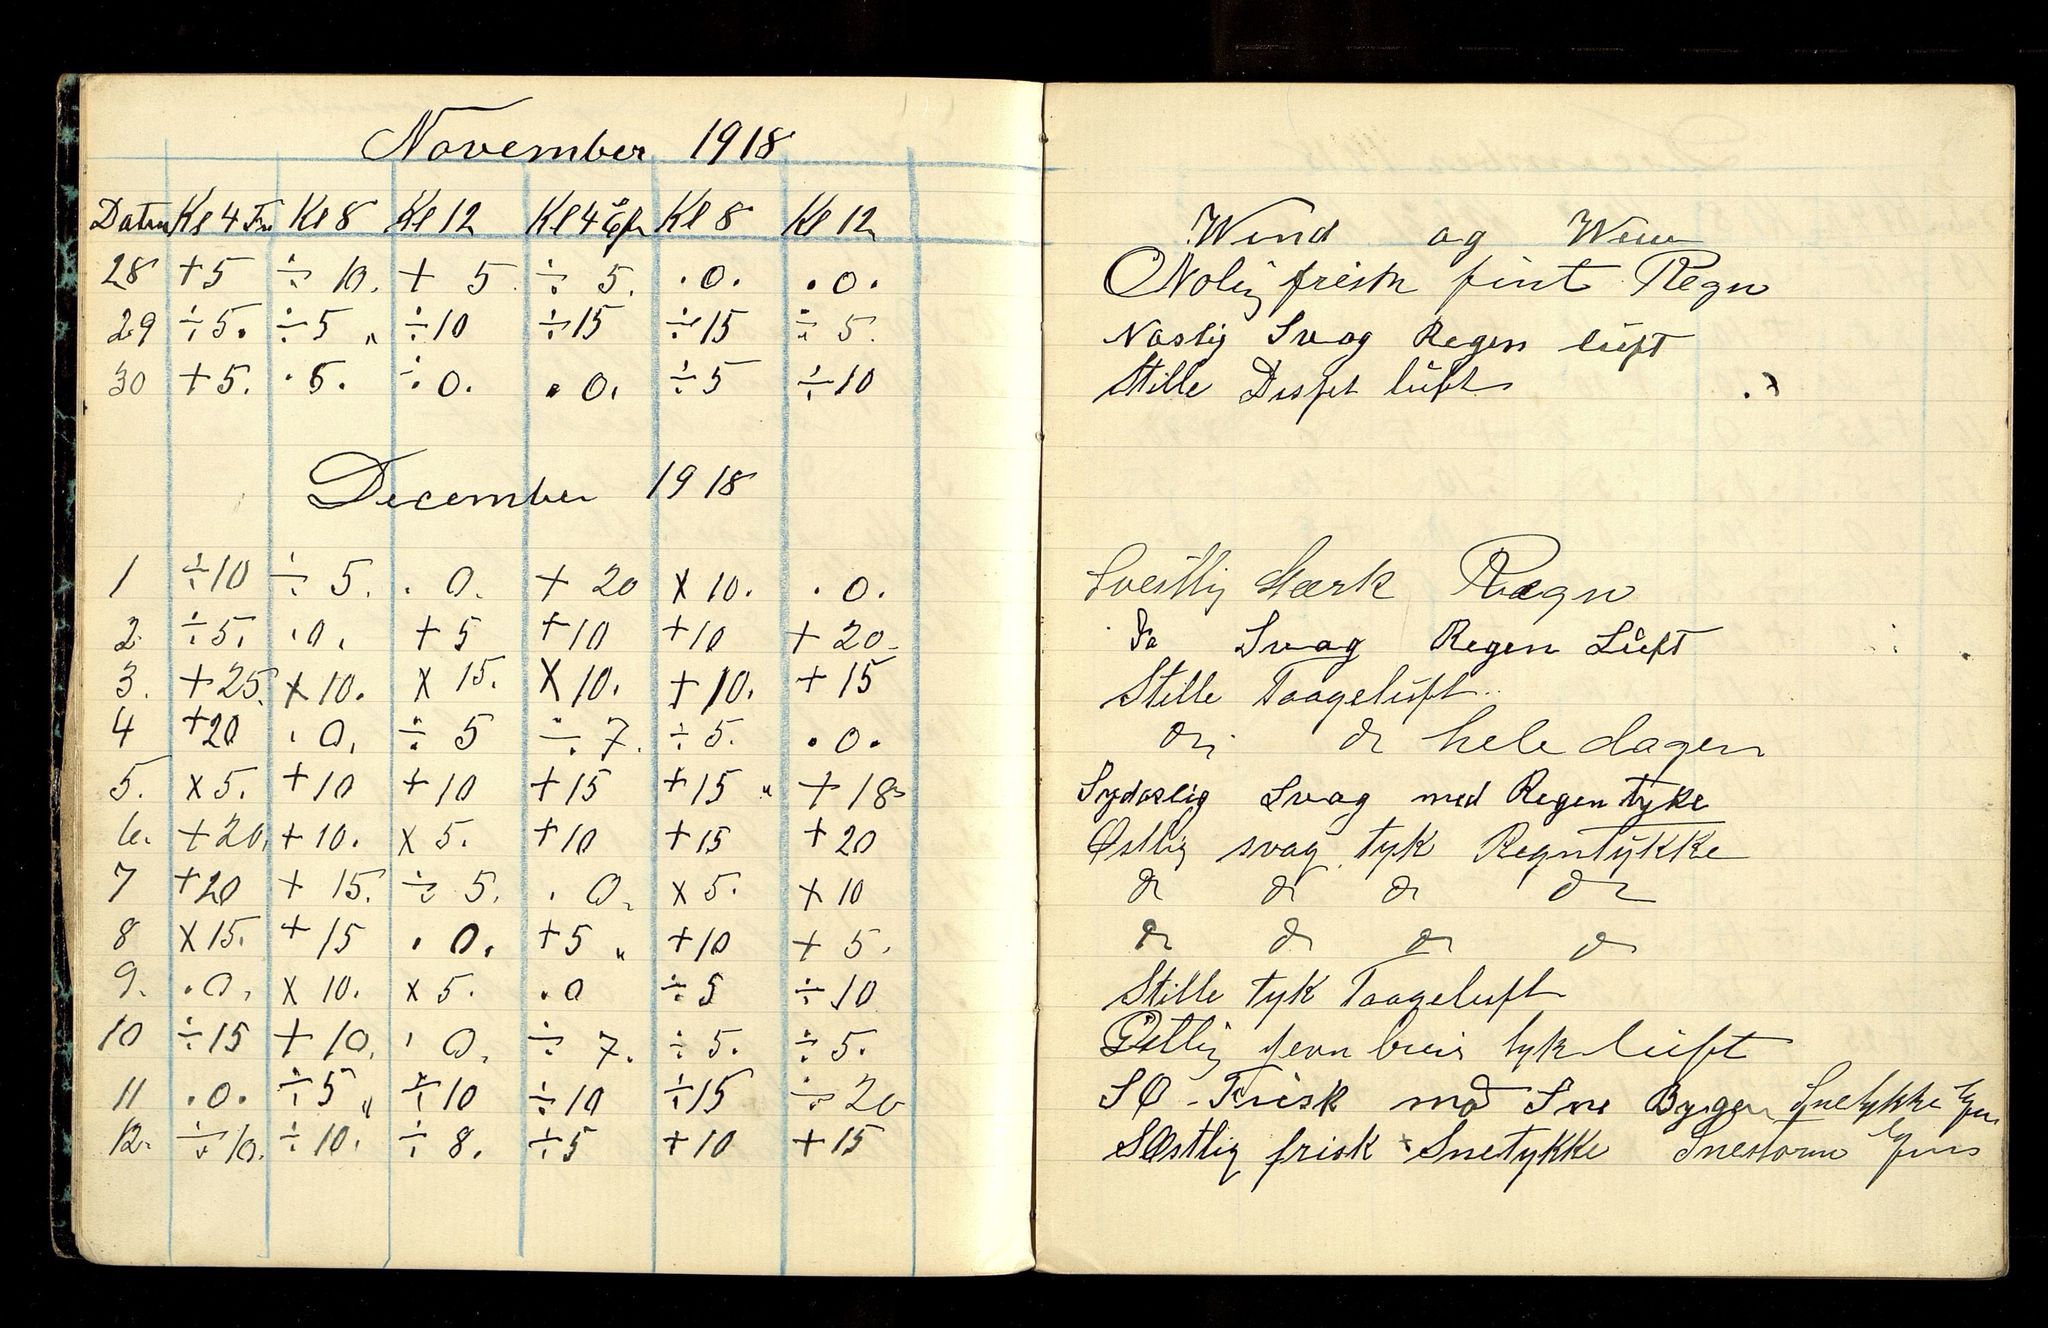 November 1918
Datum Kl 4 Fm Kl 8 Kl 12 Kl 4 Efm Kl 8 Kl 12
28 +5 ÷ 10. + 5. ÷ 5. .0. .0.
29 ÷5. ÷5 „ ÷10 ÷15 ÷15 ÷ 5.
30 +5. .5. ÷.0. .0. ÷5 ÷10
December 1918
1 ÷10 ÷ 5. .0. + 20 x 10. .0.
2. ÷5. .0. +5 +10 +10 +20.
3. +25. x10. x 15. x10. +10. +15
4 +20 .0. ÷ 5 ÷ 7. ÷5. .0.
5. x5. +10 +10 +15 +15 „ +18
6. +20. +10. x5. +10 +15 +20
7 +20 + 15. ÷ 5. .0. x5. x10
8 x15. +15 .0. +5 „ +10 + 5.
9. .0. x 10. x5. .0 ÷5 ÷10
10 ÷15 +10. .0. ÷ 7. ÷5. ÷5.
11 .0. ÷5 „ ÷10 ÷10 ÷15 ÷20
12. ÷10. ÷10. ÷8. ÷5 +10 +15
Wind og
Nolig frisk fint Regn
Noslig Svag Regen lüft
Stille Disset lüft
Svestlig Stærk Rægn
Do Svag Regen Lüft
Stille Taagelüft
do do hele dagen
Sydoslig Svag med Regen tyke
Østlig svag tyk Regntykke
do do do do
do do do do
Stille tyk Taageluft
Østlig jevn bris tyk lüft
SO - Frisk mod Sne Byger Snetykke Efm
SØstlig frisk Snetykke Snestorm Efms